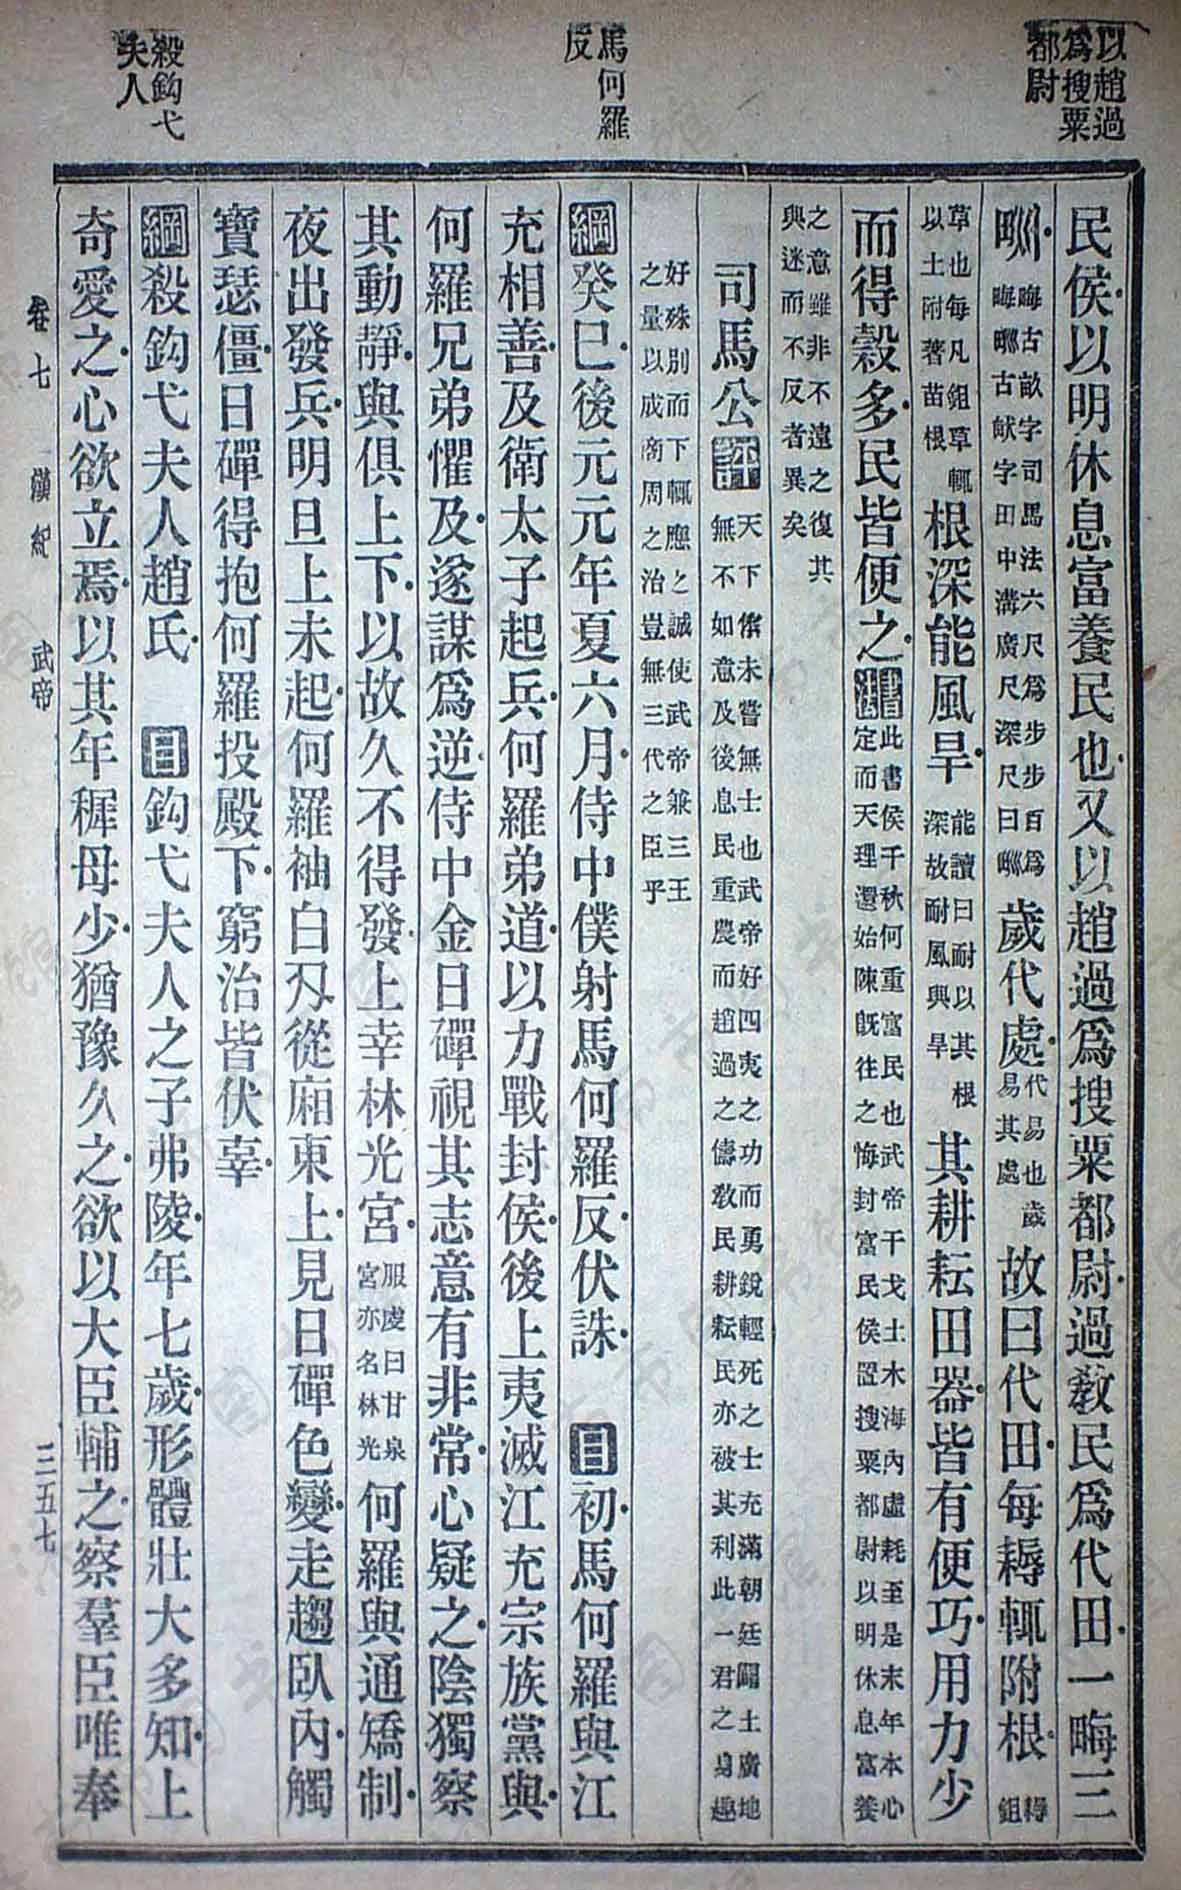 以趙過
爲搜粟
都尉
馬何羅
反
殺鈎弋
夫人
民侯以明休息富養民也又以趙過爲搜粟都尉過教民爲代田一畮三
甽畮古畝字司馬法六尺爲步步百爲畮甽古畎字田中溝廣尺深尺曰甽歲代處代易也歲易其處故曰代田每耨輒附根耨鉏
草也每凡鉏草輒以土附著苗根根深能風旱能讀曰耐以其根深故耐風與旱其耕耘田器皆有便巧用力少
而得穀多民皆便之此書侯千秋何重富民也武帝干戈土木海內虛耗至是末年本心定而天理還始陳旣往之悔封富民侯置搜粟都尉以明休息富養
之意雖非不遠之復其與迷而不反者異矣
司馬公評天下信未嘗無士也武帝好四夷之功而勇銳輕死之士充滿朝廷闢土廣地無不如意及後息民重農而趙過之儔教民耕耘民亦被其利此一君之身趣
好殊別而下輒應之誠使武帝兼三王之量以成商周之治豈無三代之臣乎
綱癸巳後元元年夏六月侍中僕射馬何羅反伏誅　目初馬何羅與江
充相善及衛太子起兵何羅弟道以力戰封侯後上夷滅江充宗族黨與
何羅兄弟懼及遂謀爲逆侍中金日磾視其志意有非常心疑之陰獨察
其動靜與俱上下以故久不得發上幸林光宮服虔曰甘泉宮亦名林光何羅與通矯制
夜出發兵明旦上未起何羅袖白刃從廂東上見日磾色變走趨臥內觸
寶瑟僵日磾得抱何羅投殿下窮治皆伏辜
綱殺鈎弋夫人趙氏　目鈎弋夫人之子弗陵年七歲形體壯大多知上
奇愛之心欲立焉以其年穉母少猶豫久之欲以大臣輔之察羣臣唯奉
卷七　漢紀　武帝　三五七